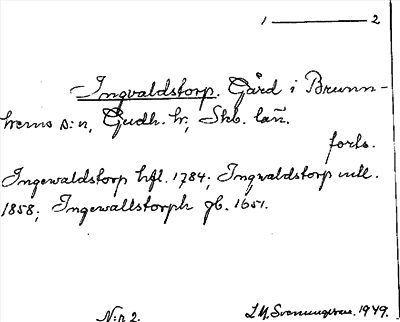 1 — 2
Ingvaldstorp. Gård i Brunn-
hems s:n, Gudh. hr, Skb. län.
forts.
Ingewaldstorp hfl. 1784; Ingwaldstorp mtl.
1858; Ingewallstorph gb. 1651.
N:r 2. 1949.